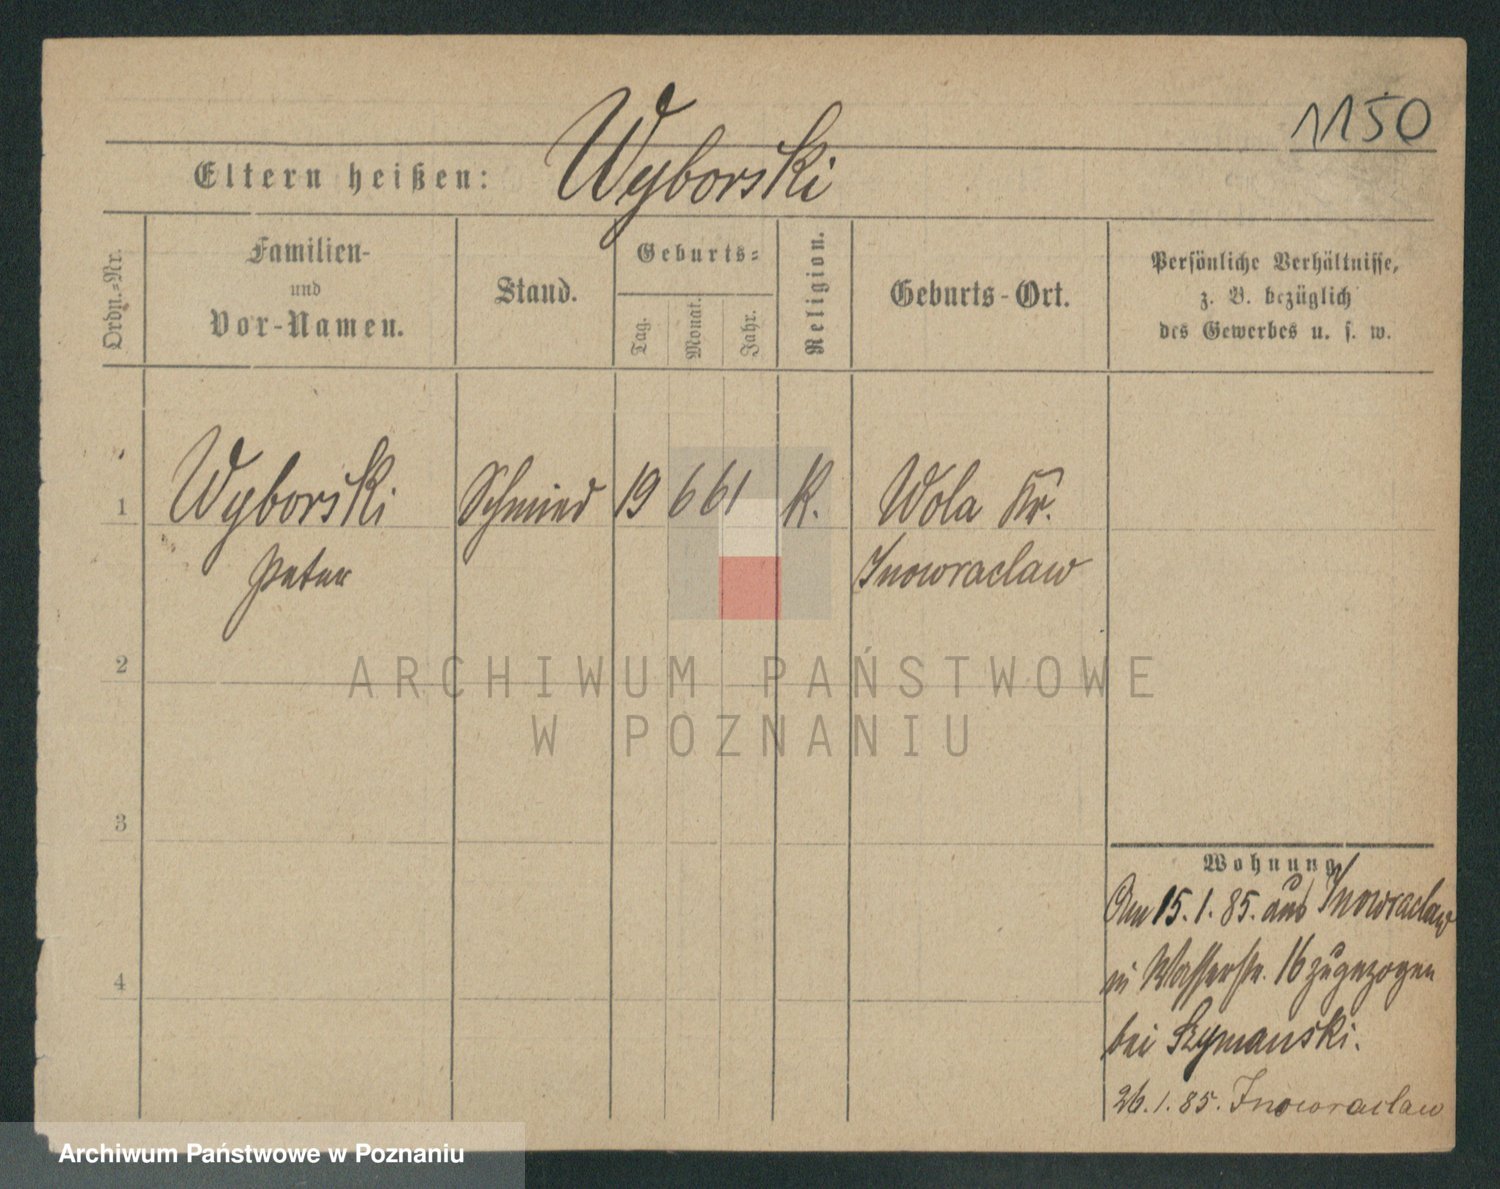 1150
Eltern heißen: Wyborski
Ordn.-Nr.
Familien-
und
Vor-Namen.
Stand.
Geburts-
Tag.
Monat.
Jahr.
Religion.
Geburts-Ort.
Persönliche Verhältnisse,
z. B. bezüglich
des Gewerbes u. s. w.
1 Wyborski Schmied 19 6 61 K. Wola Kr.
Peter Inowraclaw
2
ARCHIWUM PAŃSTWOWE
W POZNANIU
3
Wohnung
Am 15.1.85. aus Inowraclaw
in Wasserstr. 16 zugezogen
4
bei Szymanski.
26.1.85. Inowraclaw
Archiwum Państwowe w Poznaniu